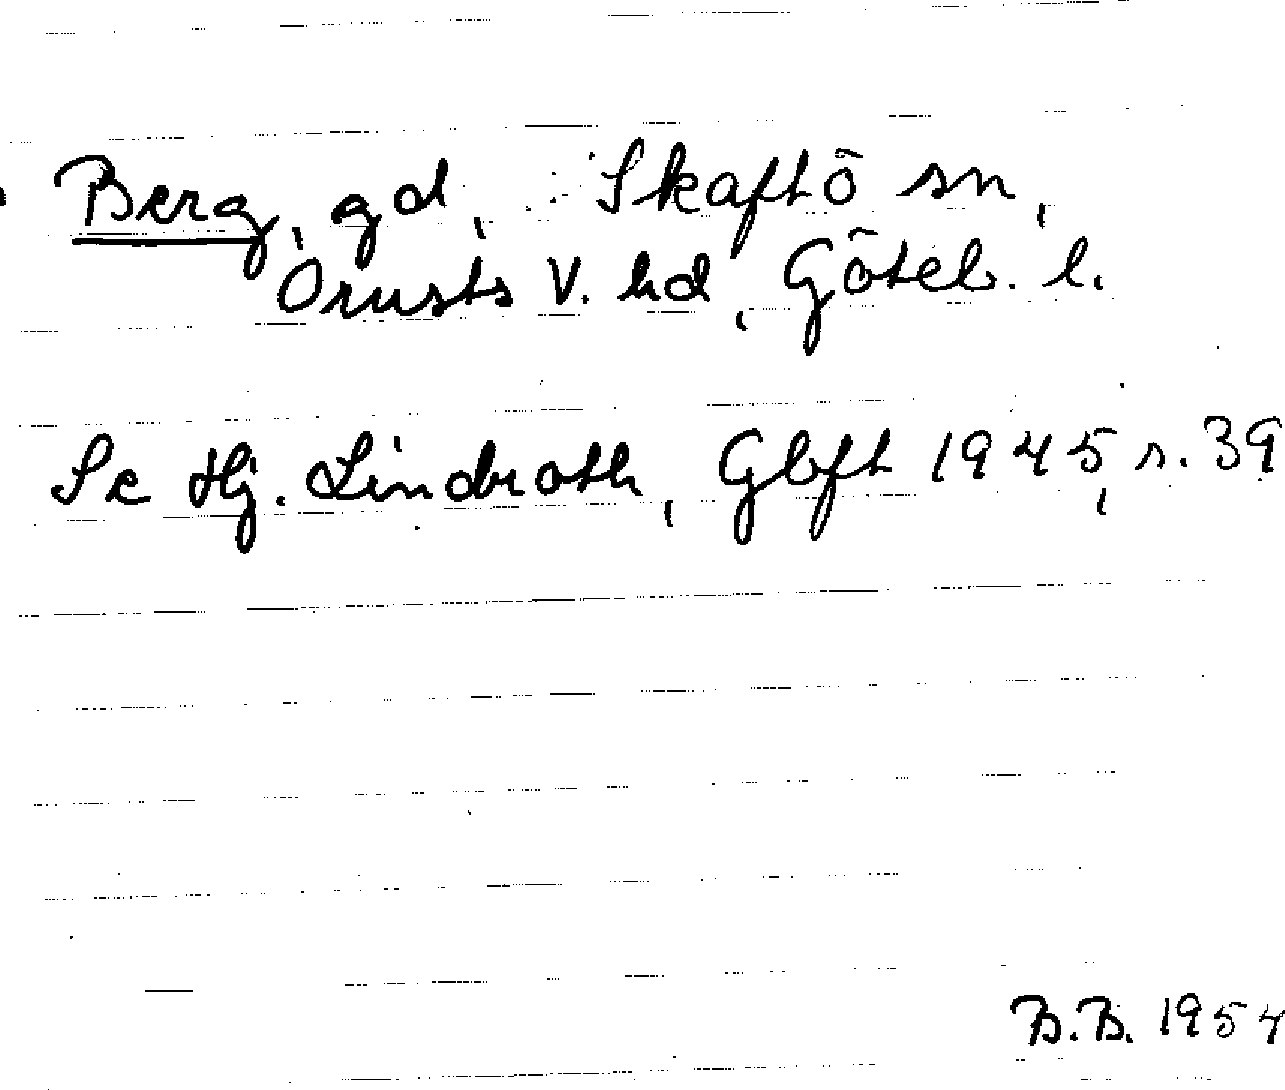 Berg, gd, Skaftö sn,
Orusts V. hd, Göteb. l.
Se Hj. Lindroth, Gbft 1945, s. 39
B.B. 1954